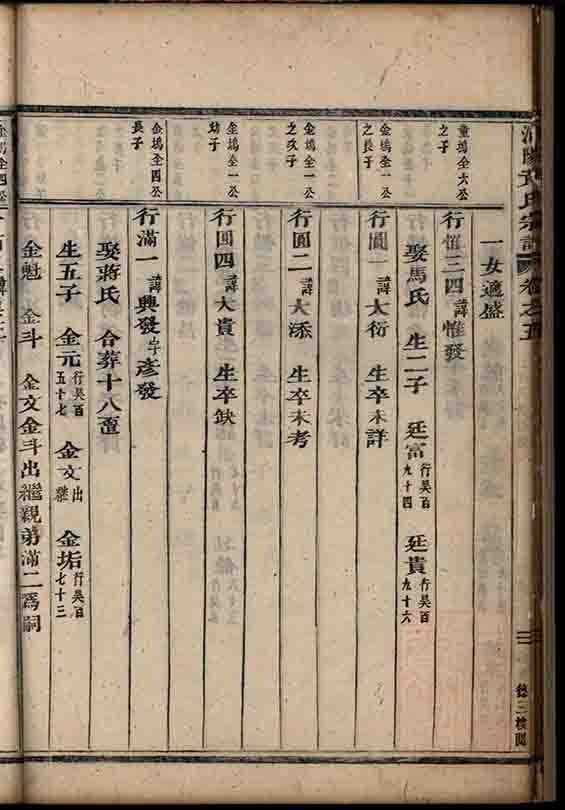 氏宗譜 卷之五
一女適盛
童塢全六公之子
行恒三四 諱惟發
娶馬氏 生二子 廷富 行吳百九十四 廷貴 行吳百九十六
金塢全一公之長子
行圓一 諱大衍 生卒未詳
金塢全一公之次子
行圓二 諱大添 生卒未考
金塢全一公幼子
行圓四 諱大貴 生卒缺
金塢全四公長子
行滿一 諱興發 字彥發
娶蔣氏 合葬十八畝
生五子 金元 行吳百五十七 金文 出繼 金垢 行吳百七十三
金魁 金斗 金文金斗出繼親弟滿二為嗣
金塢全四公